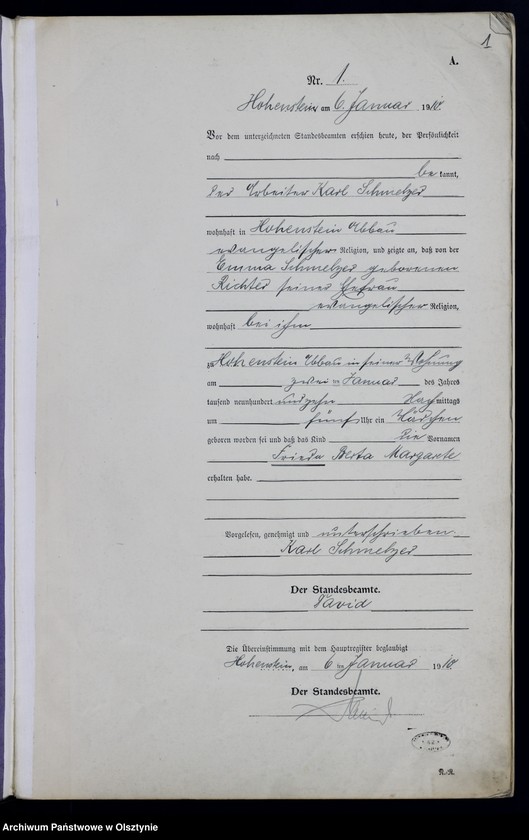 1
A.
Nr. 1.
Hohenstein am 6. Januar 1910.
Vor dem unterzeichneten Standesbeamten erschien heute, der Persönlichkeit
nach
be kannt,
der Arbeiter Karl Schmelzer
wohnhaft in Hohenstein Abbau
evangelischer Religion, und zeigte an, daß von der
Emma Schmelzer geborenen
Richter seiner Ehefrau
evangelischer Religion,
wohnhaft bei ihm
zu Hohenstein Abbau in seiner Wohnung
am zwei ten Januar des Jahres
tausend neunhundert und zehn Nachmittags
um fünf Uhr ein Mädchen
geboren worden sei und daß das Kind die Vornamen
Frieda Berta Margarete
erhalten habe.
Vorgelesen, genehmigt und unterschrieben.
Karl Schmelzer
Der Standesbeamte.
David
Die Übereinstimmung mit dem Hauptregister beglaubigt
Hohenstein, am 6 ten Januar 1910.
Der Standesbeamte.
Archiwum Państwowe w Olsztynie